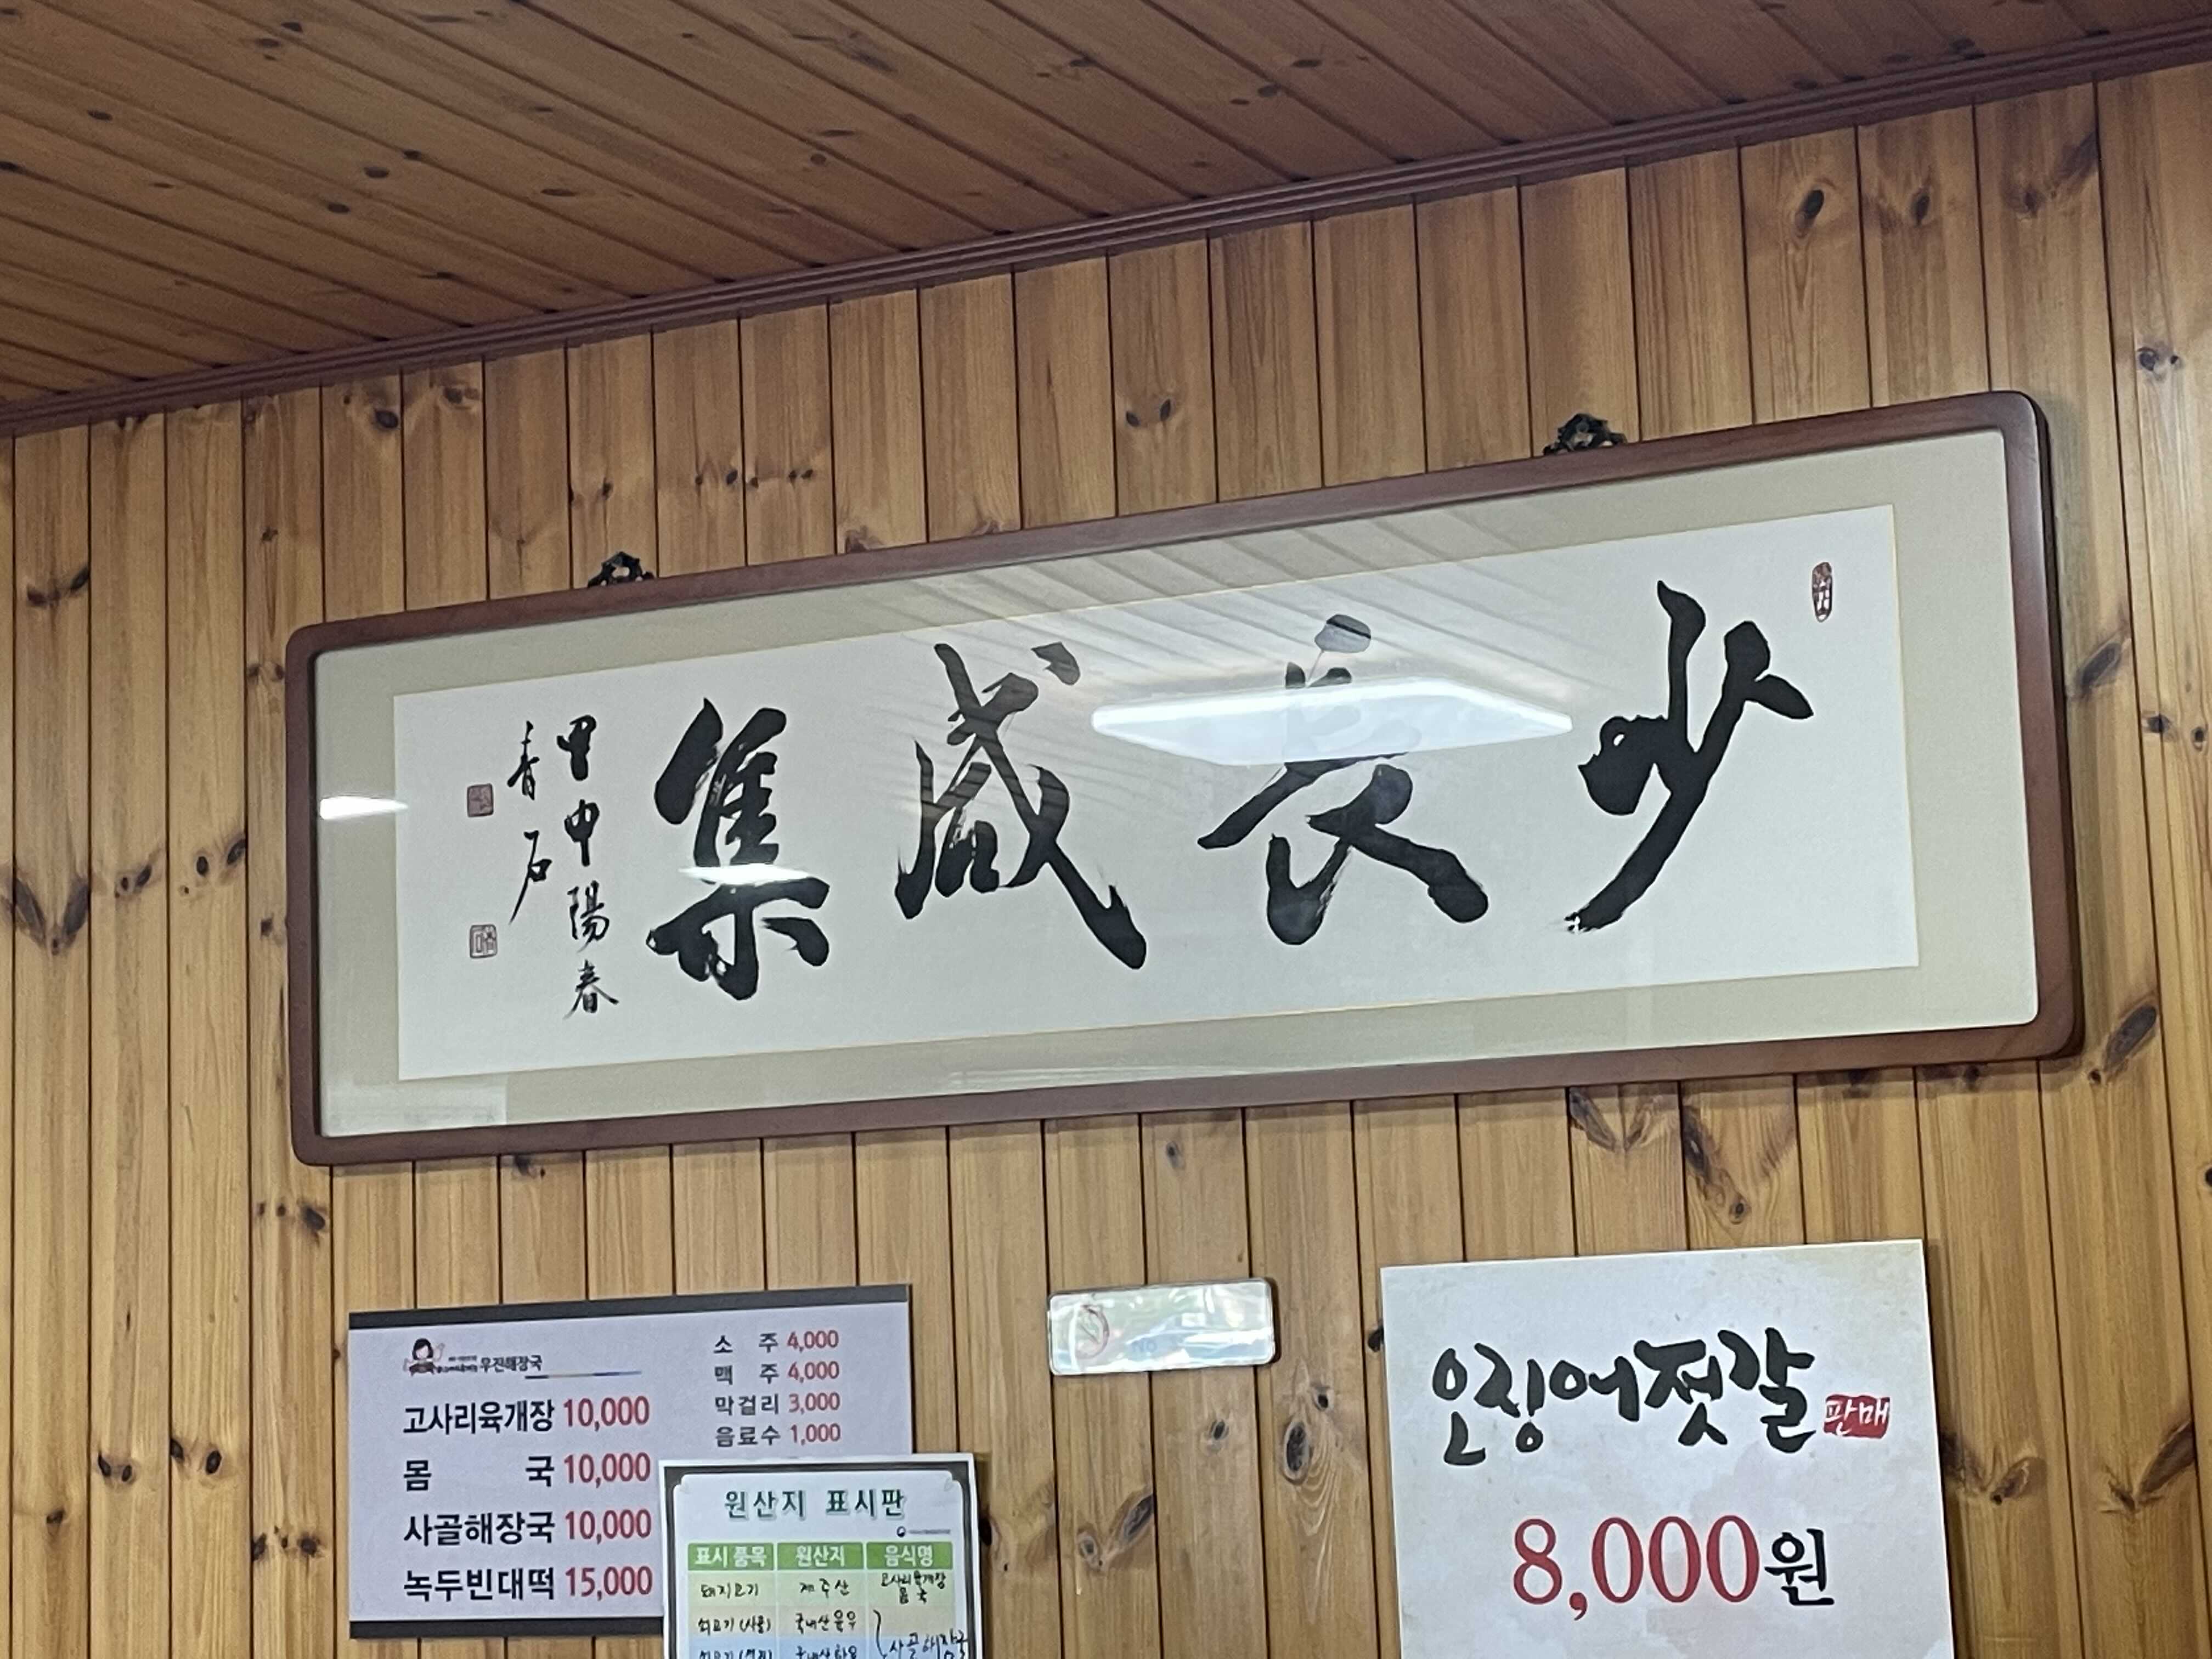 少長咸集
甲申陽春
青石
우진해장국
고사리육개장 10,000
몸 국 10,000
사골해장국 10,000
녹두빈대떡 15,000
소 주 4,000
맥 주 4,000
막걸리 3,000
음료수 1,000
원산지 표시판
표시 품목 원산지 음식명
돼지고기 제주산 고사리육개장
몸국
쇠고기(사골) 국내산육우
사골해장국
오징어젓갈
판매
8,000원